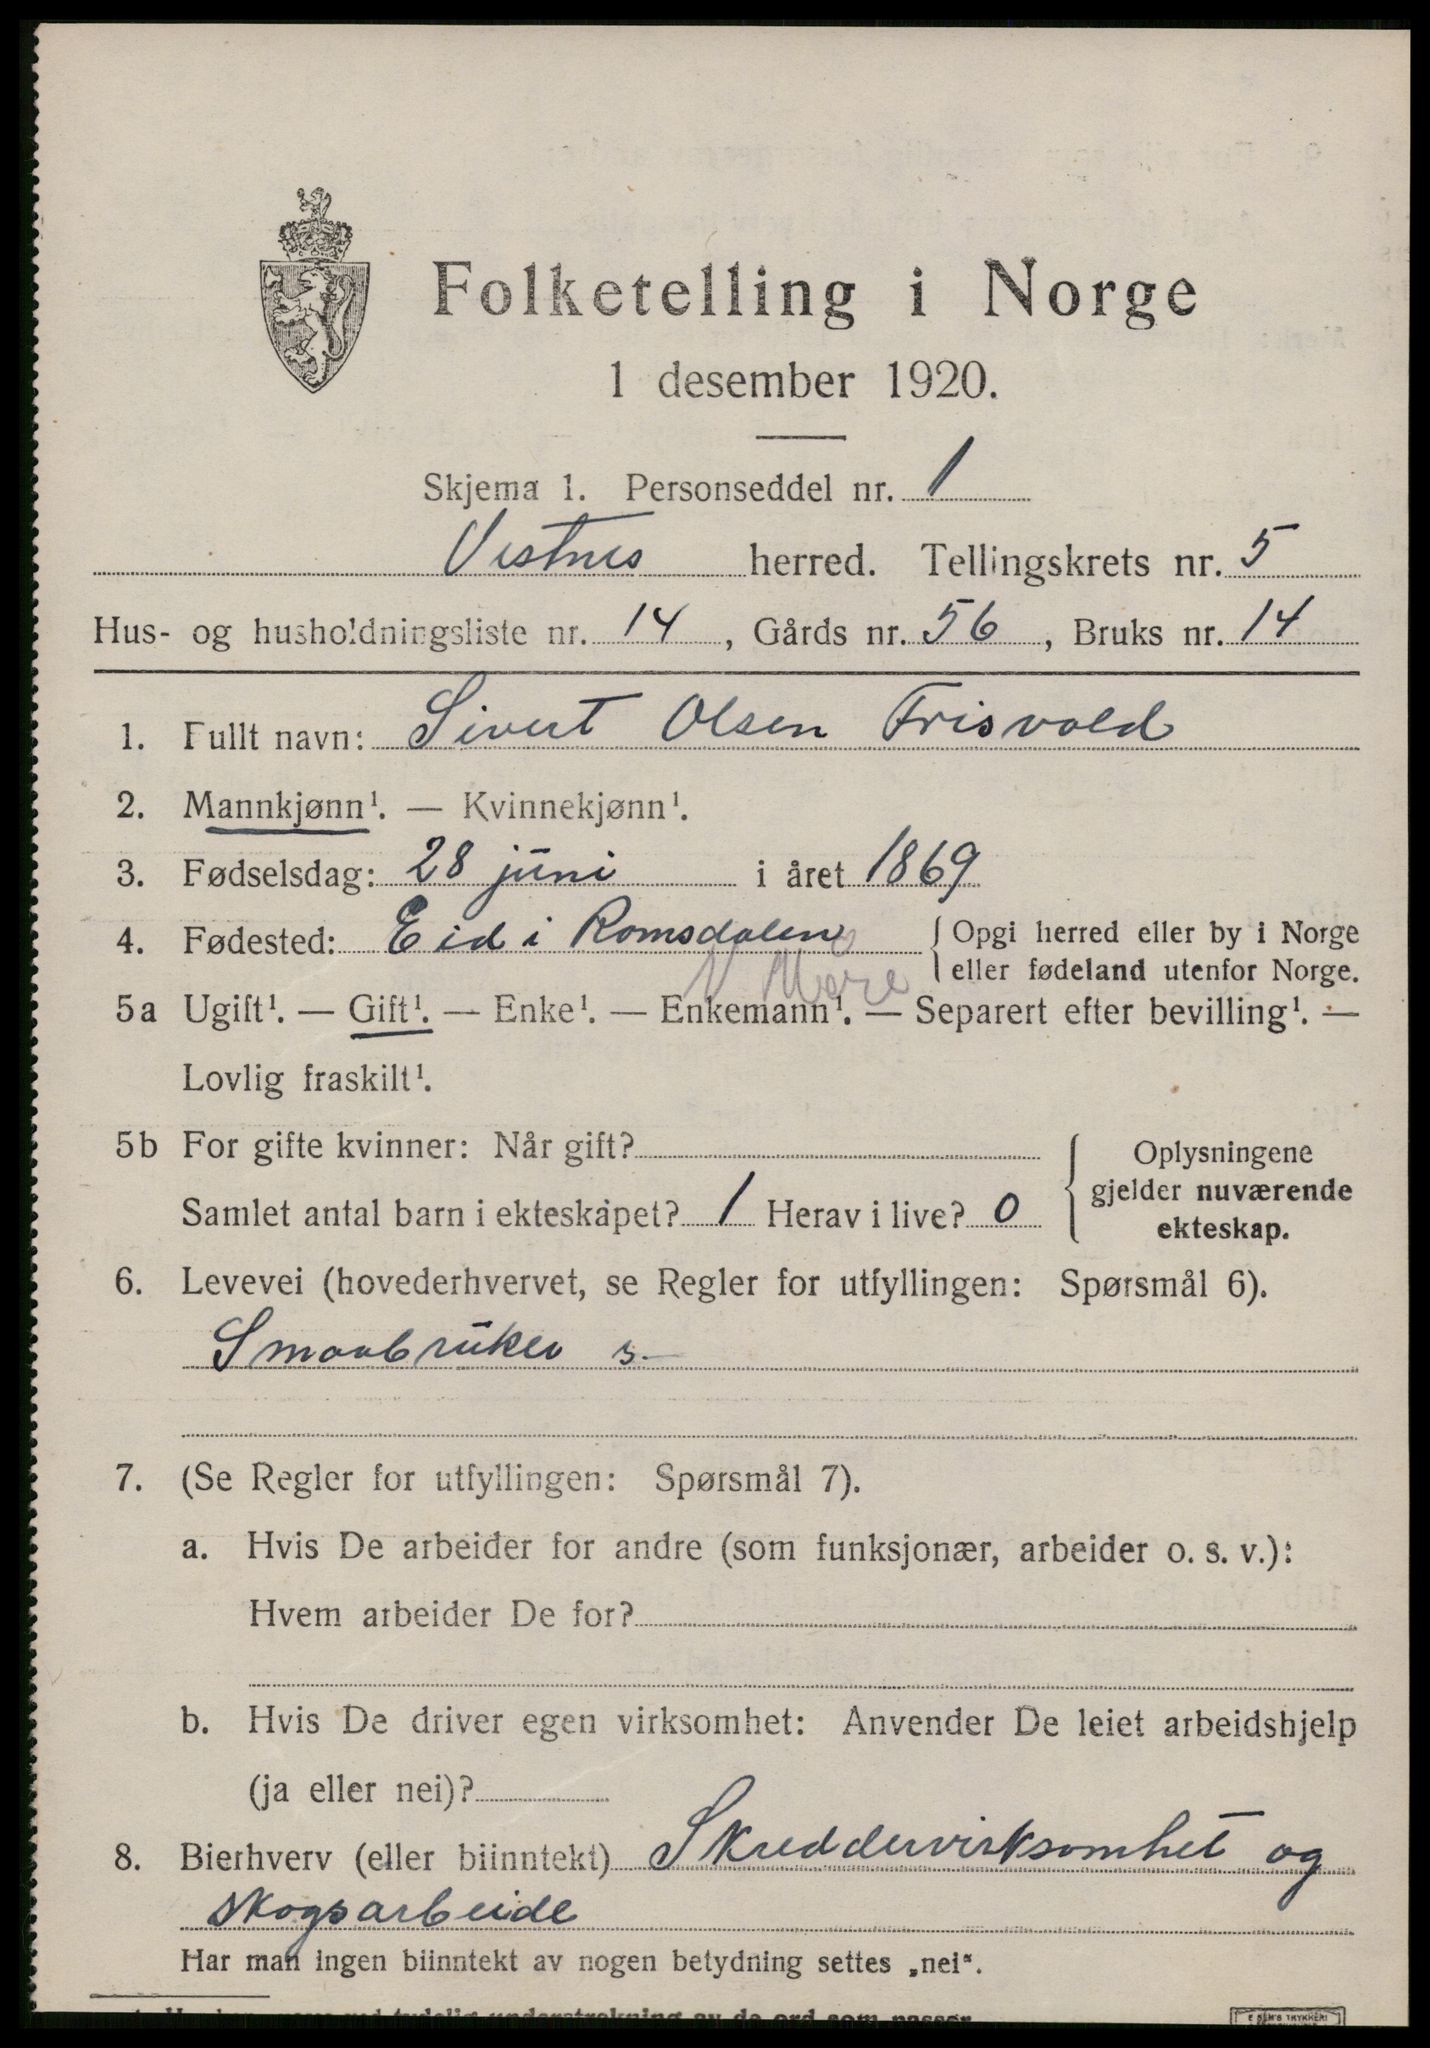 Folketelling i Norge
1 desember 1920.
Skjema 1. Personseddel nr. 1
Vestnes herred. Tellingskrets nr. 5
Hus- og husholdningsliste nr. 14, Gårds nr. 56, Bruks nr. 14
1. Fullt navn: Sivert Olsen Frisvold
2. Mannkjønn¹. — Kvinnekjønn¹.
3. Fødselsdag: 28 juni i året 1869
4. Fødested: Eid i Romsdalen { Opgi herred eller by i Norge
eller fødeland utenfor Norge.
Møre
5a Ugift¹. — Gift¹. — Enke¹. — Enkemann¹. — Separert efter bevilling¹. —
Lovlig fraskilt¹.
5b For gifte kvinner: Når gift?
Samlet antal barn i ekteskapet? 1 Herav i live? 0
Oplysningene
gjelder nuværende
ekteskap.
6. Levevei (hovederhvervet, se Regler for utfyllingen: Spørsmål 6).
Smaabruker s.
7. (Se Regler for utfyllingen: Spørsmål 7).
a. Hvis De arbeider for andre (som funksjonær, arbeider o. s. v.):
Hvem arbeider De for?
b. Hvis De driver egen virksomhet: Anvender De leiet arbeidshjelp
(ja eller nei)?
8. Bierhverv (eller biinntekt) Skreddervirksomhet og
skogsarbeide
Har man ingen biinntekt av nogen betydning settes „nei“.